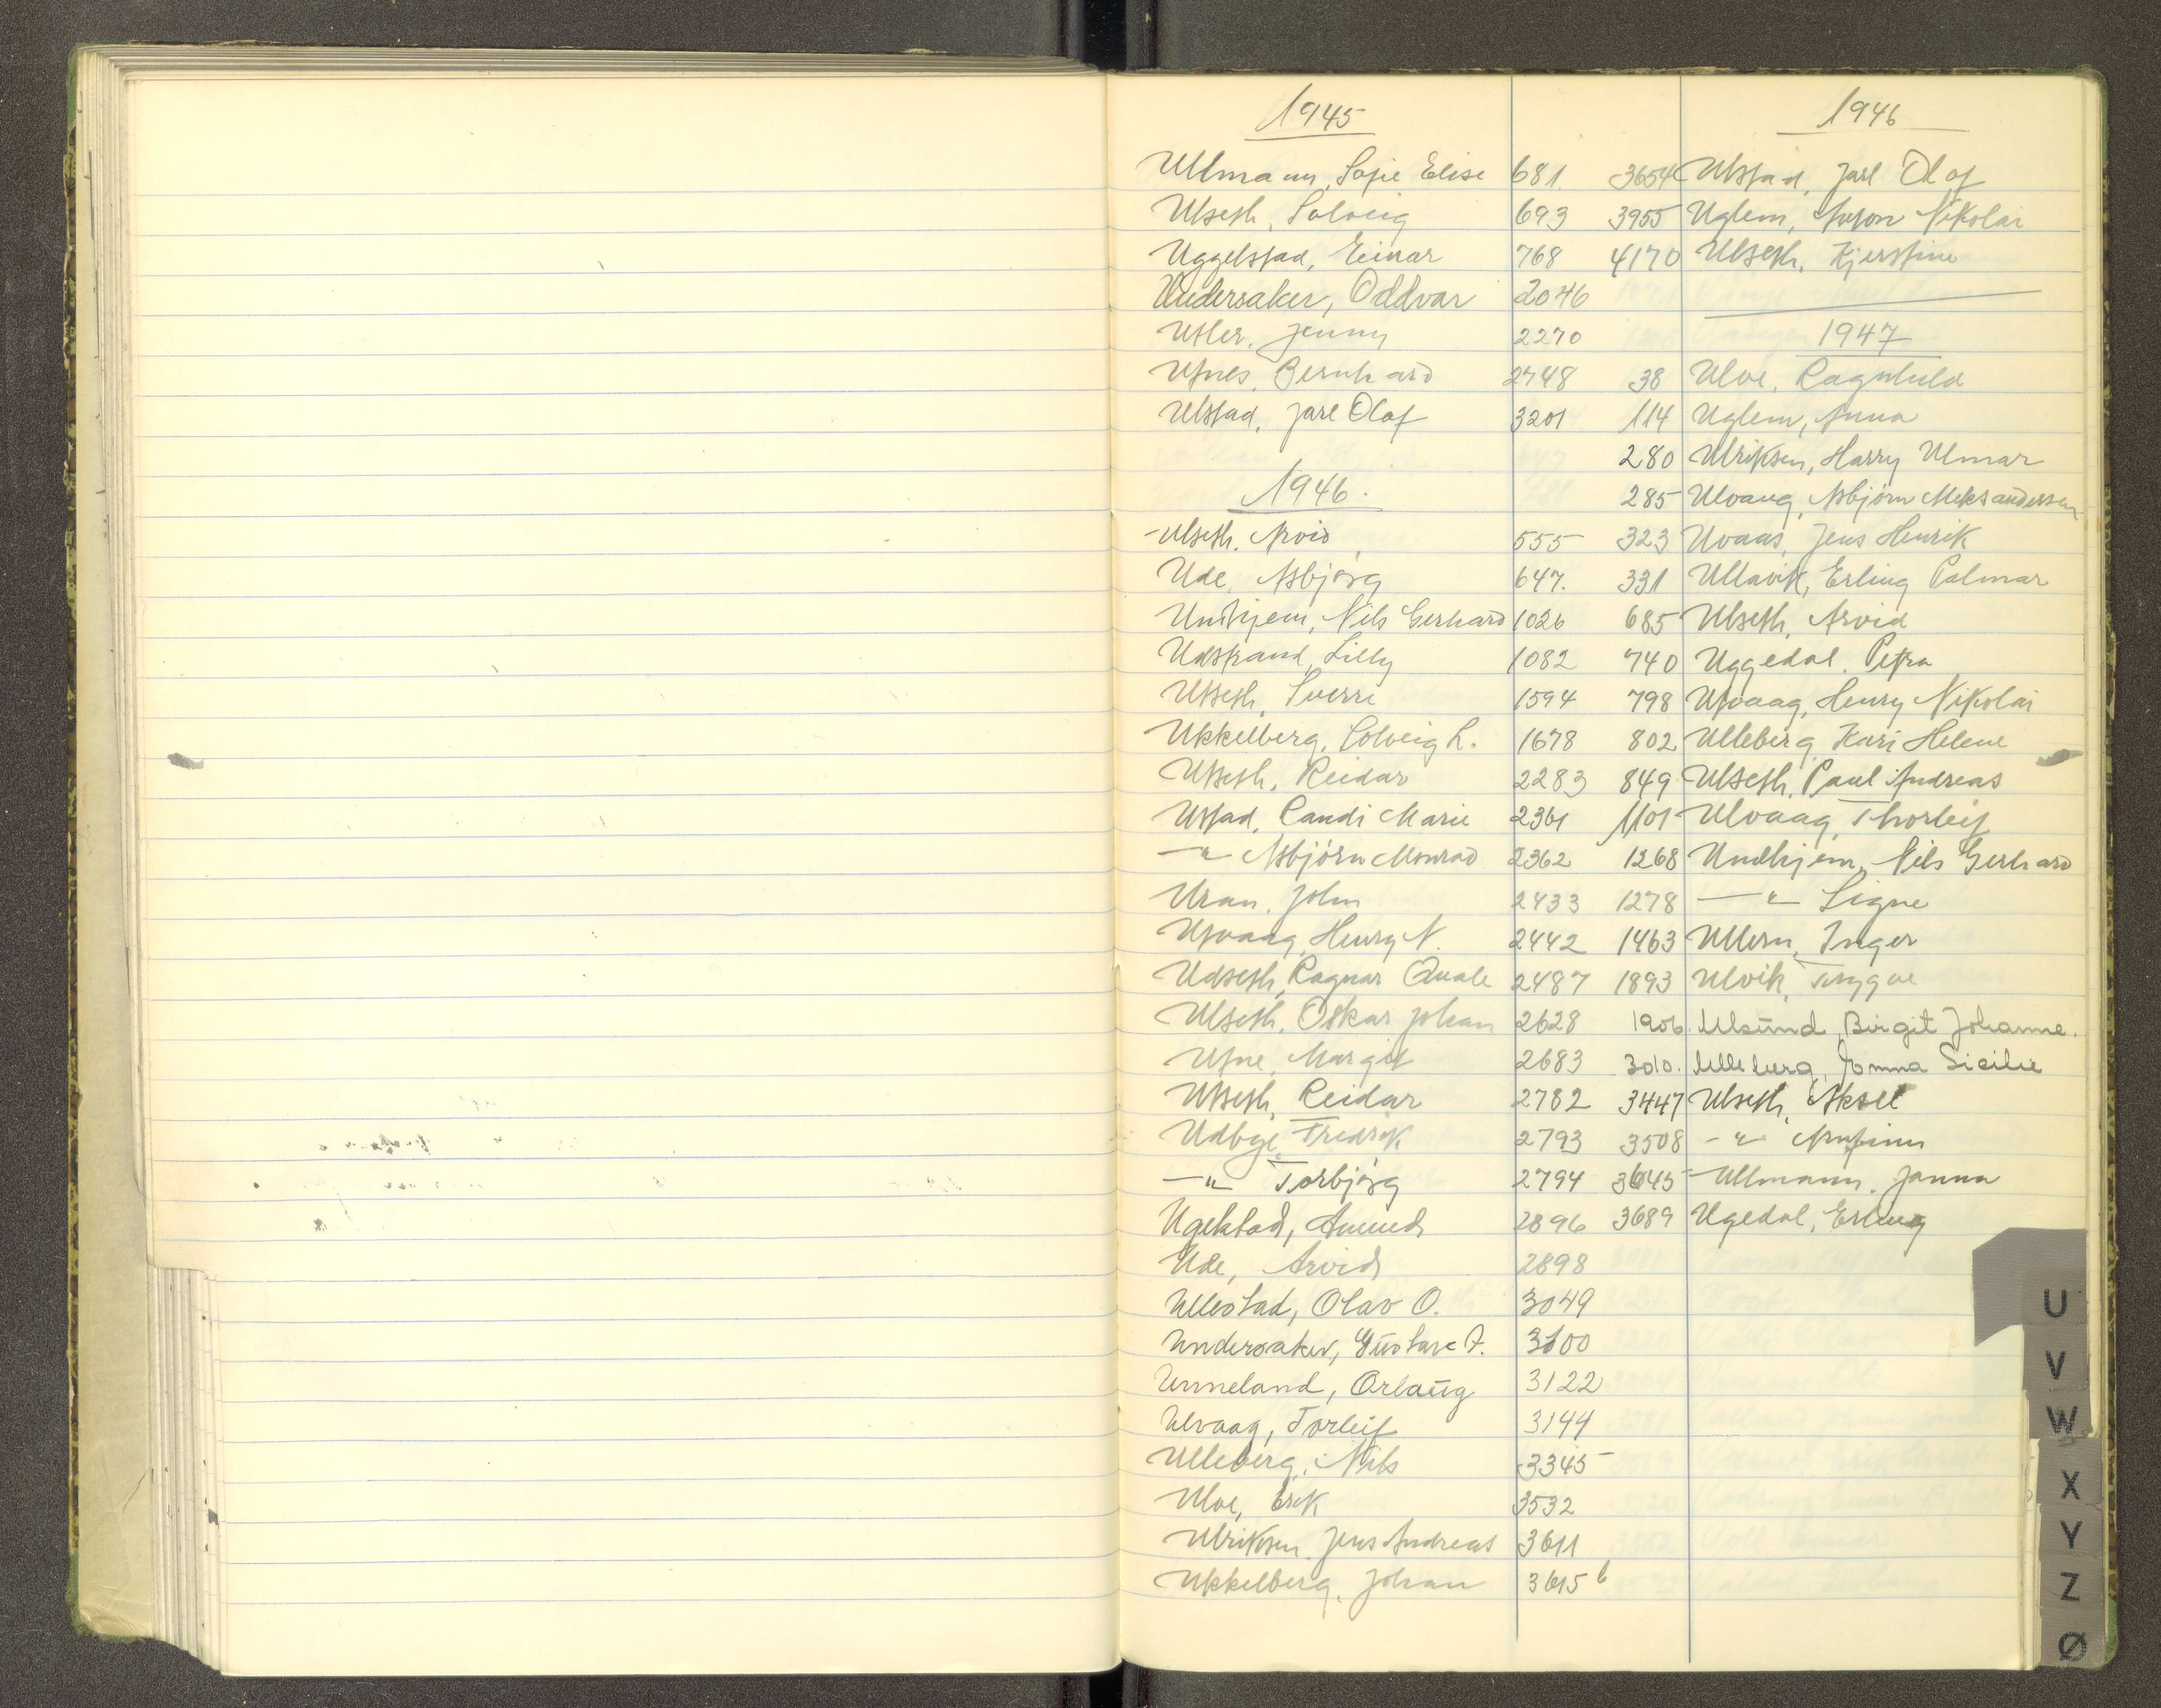 1945
Ullmann, Sofie Elise 681
Ulseth, Solveig 693
Uggelstad, Einar 768
Undersaker, Oddvar 2046
Utler, Jenny 2270
Utnes, Bernhard 2748
Ulstad, Jarl Olaf 3201
1946.
Ulseth, Arvid 555
Ude, Asbjørg 647.
Undhjem, Nils Gerhard 1026
Udstrand, Lilly 1082
Utseth, Sverre 1594
Ukkelberg, Solveig L. 1678
Utseth, Reidar 2283
Ustad, Randi Marie 2361
—"— Asbjørn Monrad 2362
Uran, John 2433
Utvaag, Henry N. 2442
Udseth, Ragnar Quale 2487
Ulseth, Oskar Johan 2628
Utne, Margit 2683
Utseth, Reidar 2782
Udbye, Fredrik 2793
—"— Torbjørg 2794
Ugelstad, Amund 2896
Ude, Arvid 2898
Ullestad, Olav O. 3049
Undersaker, Gustav J. 3100
Unneland, Orlaug 3122
Ulvaag, Torleif 3144
Ulleberg, Nils 3345
Ulve, Erik 3532
Ulriksen, Jens Andreas 3611
Ukkelberg, Johan 3615 b
1946
3654 Ulstad, Jarl Olaf
3955 Uglem, Anton Nikolai
4170 Ulseth, Kjerstine
1947
38 Ulve, Ragnhild
114 Uglem, Anna
280 Ulriksen, Harry Ulmar
285 Ulvang, Asbjörn Aleksandersen
323 Uvaas, Jens Henrik
331 Ullavik, Erling Palmar
685 Ulseth, Arvid
740 Uggedal, Petra
798 Utvaag, Henry Nikolai
802 Ulleberg, Kari Helene
849 Ulseth, Paul Andreas
1101 Ulvaag, Thorleif
1268 Undhjem, Nils Gerhard
1278 —"— Signe
1463 Ullern, Inger
1893 Ulvik, Trygve
1906. Ulsund, Birgit Johanne.
3010. Ulleberg, Jomna Sicilie
3447 Ulseth, Aksel
3508 —"— Arnfinn
3645 Ullmann, Janna
3689 Ugedal, Erling
U
V
W
X
Y
Z
Ø